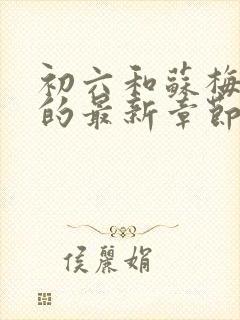 初六和蘇梅
的最新章節
侯麗娟